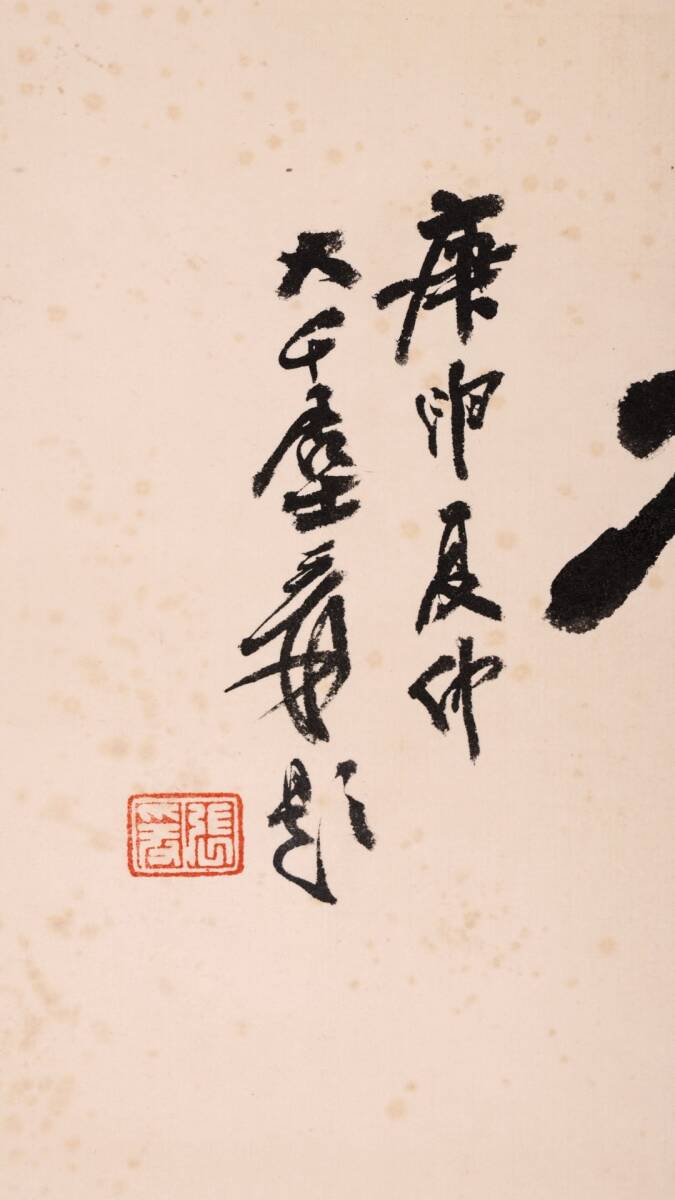 庚申夏仲
大千居士爰題
張爰